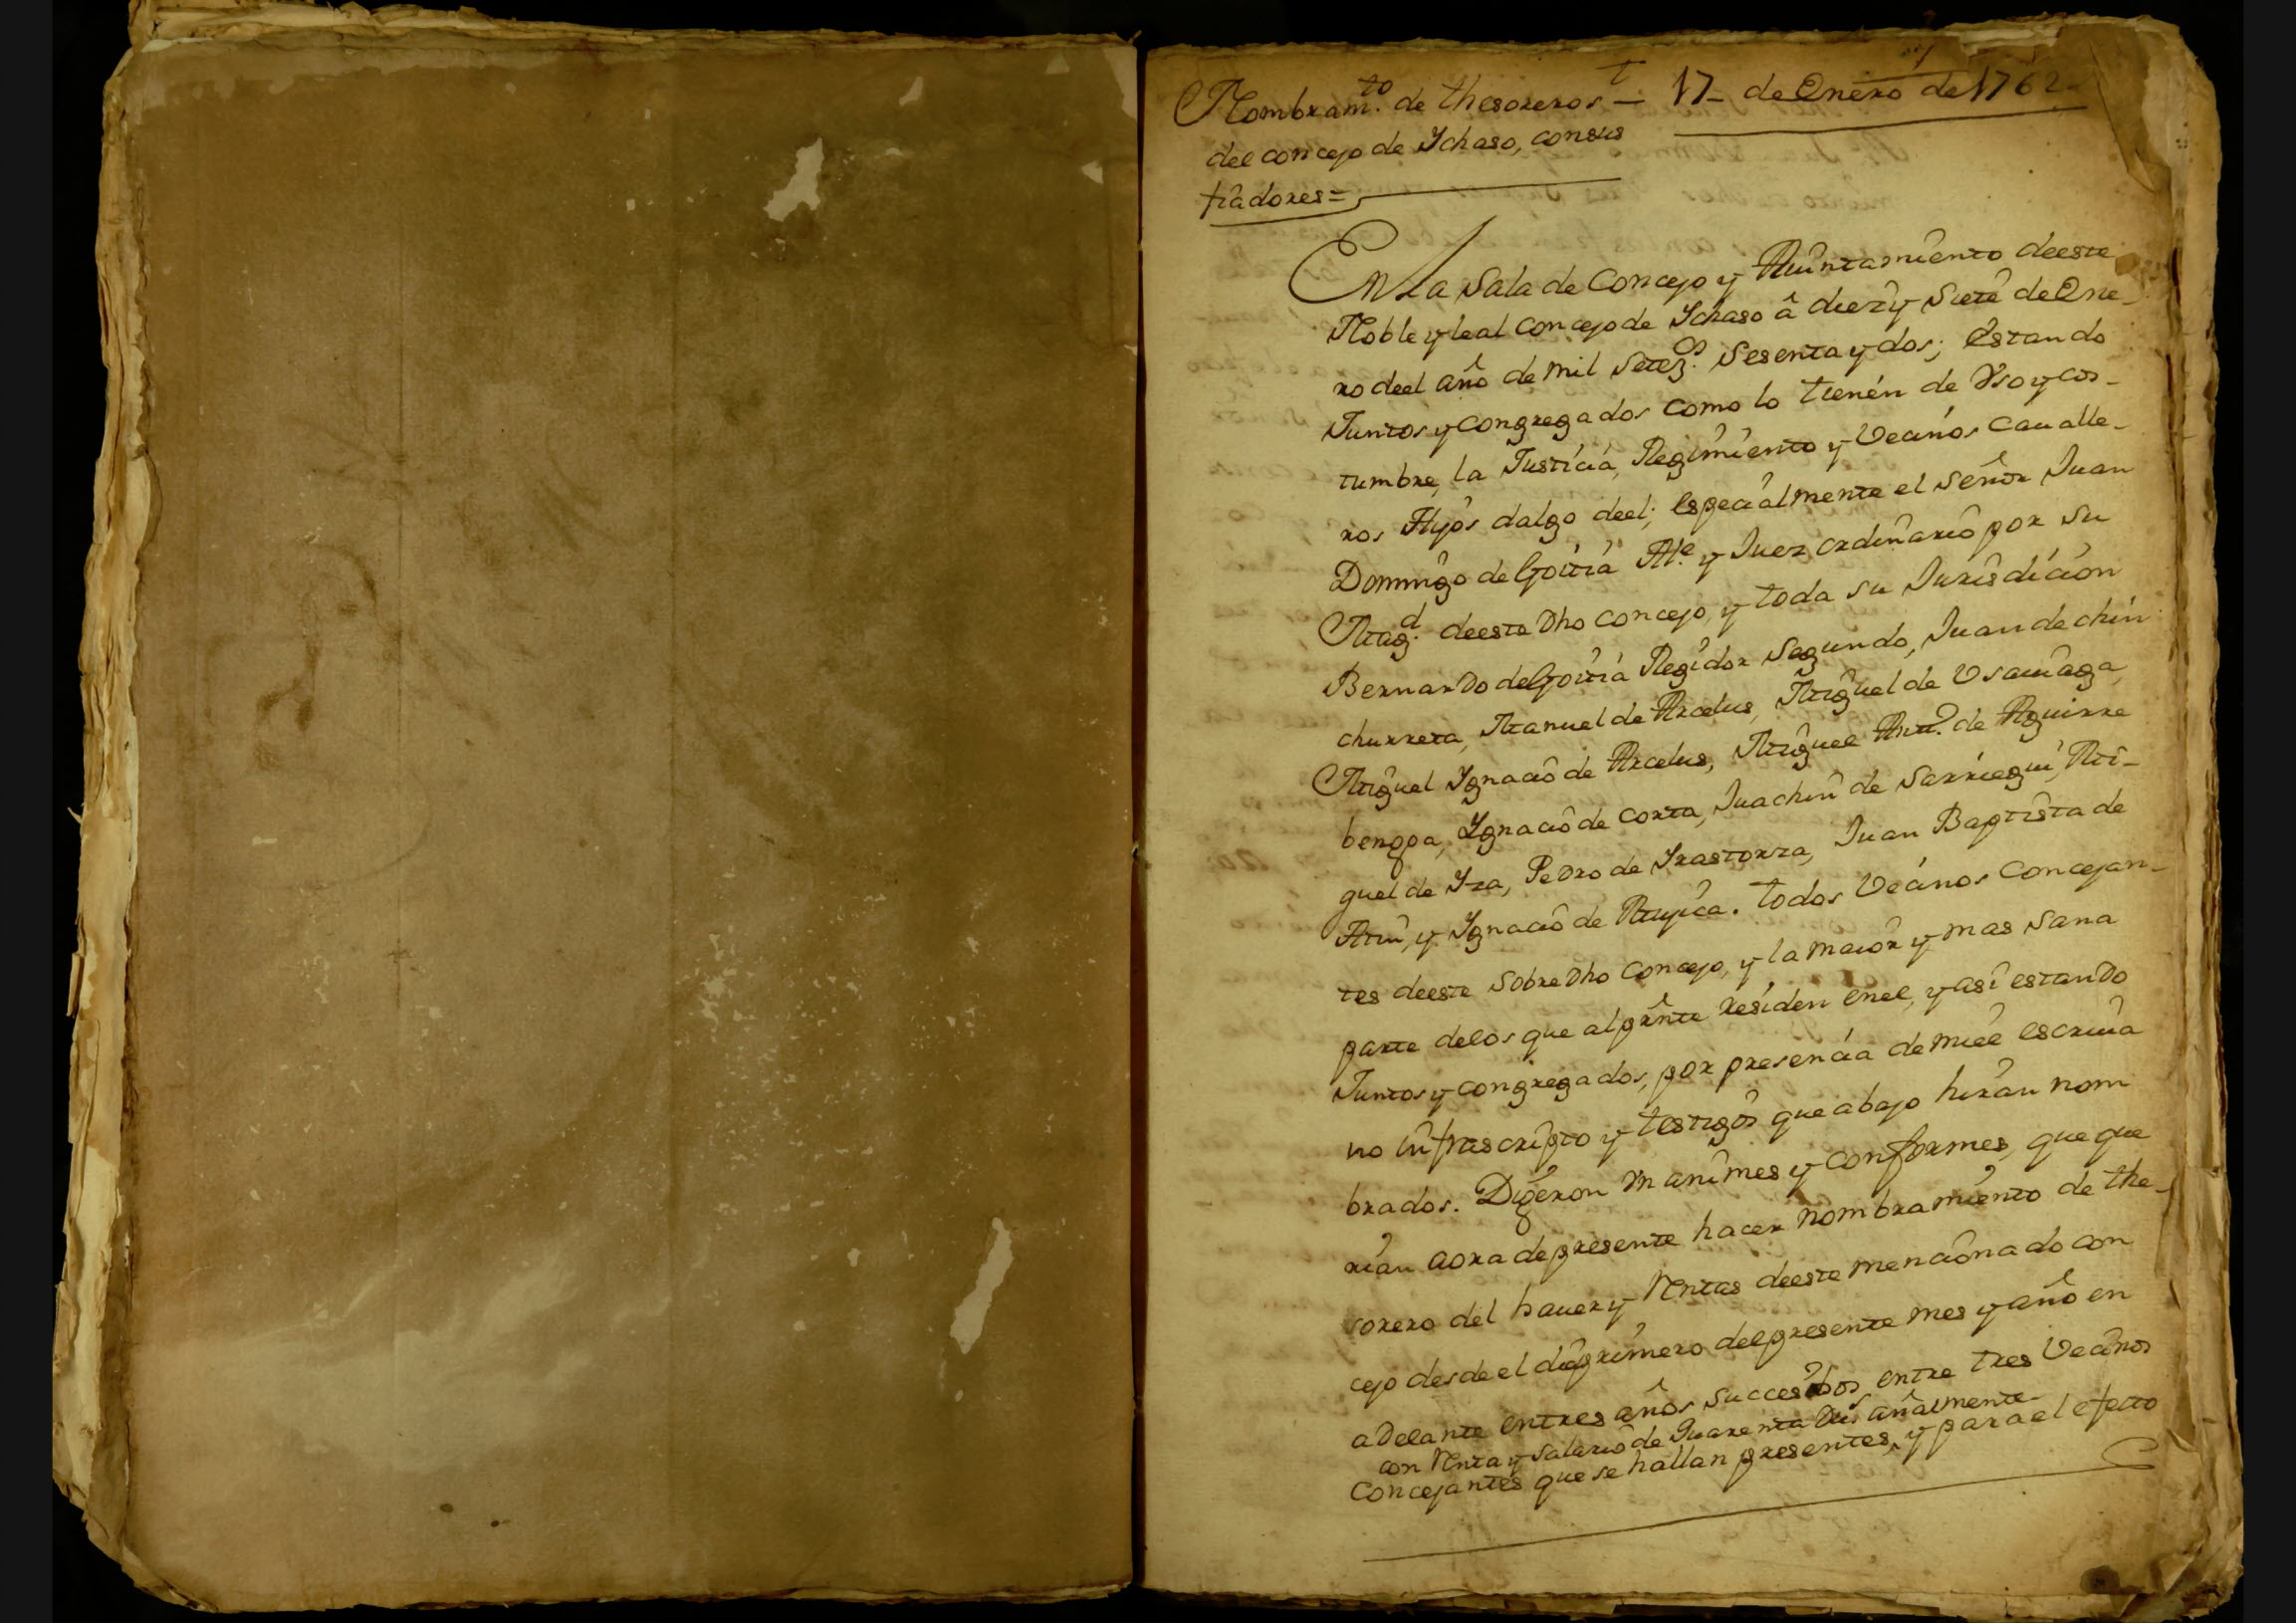 Nombram.to de thesoreros — 17- de Enero de 1762-
del concejo de Ychaso, consus
fiadores=
En La Sala de Concejo y Aiuntamiento deeste
Noble y leal Concejo de Ychaso â diez y Siete de Ene-
ro deel año de mil Setez.os Sesenta y dos; estando
Juntos y Congregados como lo tienen de Vso y cos-
tumbre, la Justicia, Regimiento y Vecinos Caualle-
ros Hijos dalgo deel; especialmente el Señor Juan
Domingo de Goitia Al.e y Juez ordinario por su
Mag.d deeste Dho Concejo, y toda su Jurisdicion
Bernardo de Goitia Regidor Segundo, Juan de chin
churreta, Manuel de Arcelus, Miguel de Vsamaga,
Miguel Ygnacio de Arcelus, Miguel Ant.o de Aguirre
bengoa, Ygnacio de Corta, Juachin de Sarriegui, Mi-
guel de Yza, Pedro de Yrastorza, Juan Baptista de
y Ygnacio de Mujica. todos Vecinos Concejan-
tes deeste Sobre Dho Concejo, y la maior y mas Sana
parte delos que al prnte residen enel, y asi estando
Juntos y congregados, por presencia de miel escriua
no infrascripto y testigos que abajo hiran nom
brados. Digeron Vnanimes y conformes, que que
rian aora de presente hacer nombramiento de the-
sorero del hauer y Rentas deeste mencionado con
cejo desde el dia primero deel presente mes y año en
adelante entres años succesibos, entre tres Vecinos
con Renta y Salario de Quarenta Rs. añalmente
Concejantes que se hallan presentes, y para el efecto